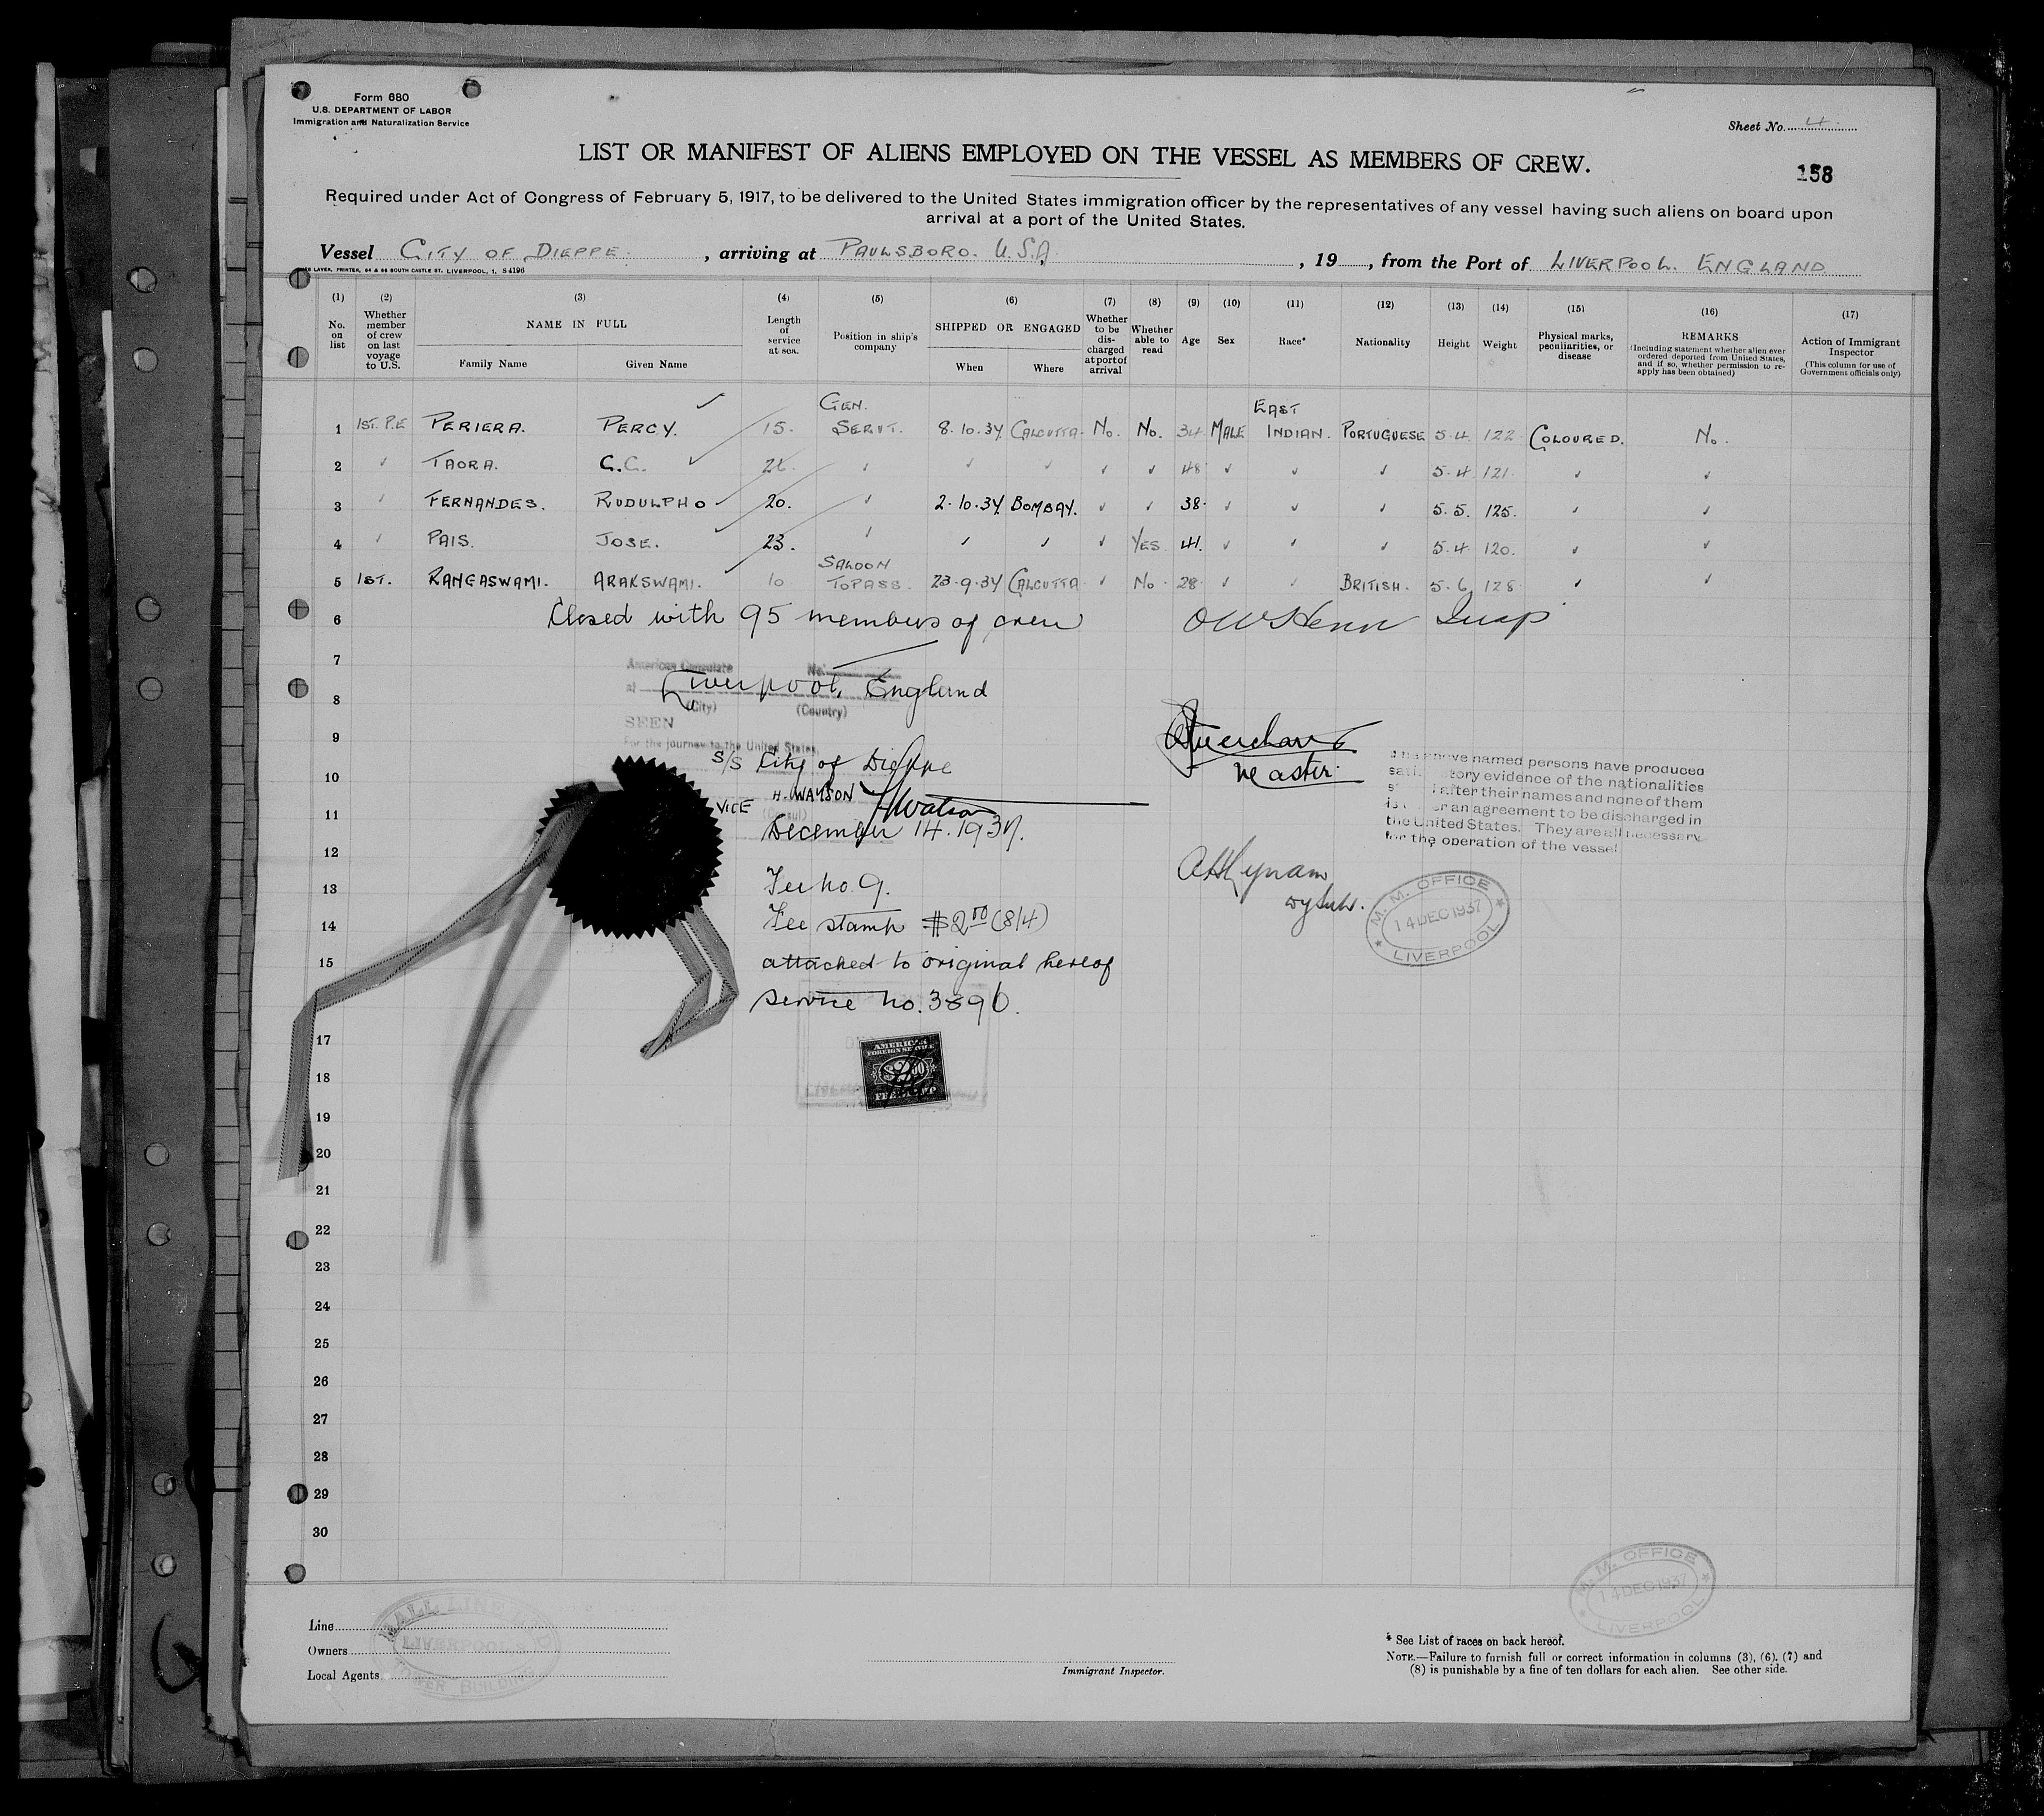 Form 680
U.S. DEPARTMENT OF LABOR
Immigration and Naturalization Service
Sheet No. 4.
LIST OR MANIFEST OF ALIENS EMPLOYED ON THE VESSEL AS MEMBERS OF CREW.
158
Required under Act of Congress of February 5, 1917, to be delivered to the United States immigration officer by the representatives of any vessel having such aliens on board upon
arrival at a port of the United States.
Vessel CITY OF DIEPPE. , arriving at PAULSBORO. U.S.A. , 19 , from the Port of LIVERPOOL. ENGLAND
LAVER, PRINTER, 54 & 56 SOUTH CASTLE ST. LIVERPOOL, 1. S4196
(1) No. on list (2) Whether member of crew on last voyage to U.S. (3) NAME IN FULL Family Name Given Name (4) Length of service at sea. (5) Position in ship's company (6) SHIPPED OR ENGAGED When Where (7) Whether to be discharged at port of arrival (8) Whether able to read (9) Age (10) Sex (11) Race* (12) Nationality (13) Height (14) Weight (15) Physical marks, peculiarities, or disease (16) REMARKS (Including statement whether alien ever ordered deported from United States, and if so, whether permission to re-apply has been obtained) (17) Action of Immigrant Inspector (This column for use of Government officials only)
1 1ST. P.E PERIERA. PERCY. 15. GEN. SERVT. 8.10.37 CALCUTTA. No. No. 34 MALE EAST INDIAN. PORTUGUESE 5.4. 122 COLOURED. No.
2 TAORA. C.C. 26. 48 5.4 121.
3 FERNANDES. RUDULPHO 20. 2.10.37 BOMBAY. 38. 5.5. 125.
4 PAIS. JOSE. 23. YES 41. 5.4 120.
5 1ST. RANGASWAMI. ARAKSWAMI. 10 SALOON TOPASS. 23.9.37 CALCUTTA No. 28 BRITISH. 5.6 128
6 Closed with 95 members of crew
7
American Consulate No.
at Liverpool, England
8
(City) (Country)
SEEN
9
For the journey to the United States.
S/S City of Dieppe
Master.
10
VICE H. WATSON HWatson
(Consul)
11
December 14. 1937.
The above named persons have produced
satisfactory evidence of the nationalities
after their names and none of them
is under an agreement to be discharged in
the United States. They are all necessary
for the operation of the vessel
12
13
Fee no 9.
M. M. OFFICE
14 DEC 1937
LIVERPOOL
14
Fee stamp $2.00 (8/4)
15
attached to original hereof
Service no. 3896.
17
AMERICAN
FOREIGN SERVICE
$2.00
FEE STAMP
18
19
20
21
22
23
24
25
26
27
28
29
30
M. M. OFFICE
14 DEC 1937
LIVERPOOL
HALL LINE LTD
LIVERPOOL
TOWER BUILDING
Line
Owners
Local Agents
Immigrant Inspector.
* See List of races on back hereof.
NOTE.—Failure to furnish full or correct information in columns (3), (6), (7) and
(8) is punishable by a fine of ten dollars for each alien. See other side.